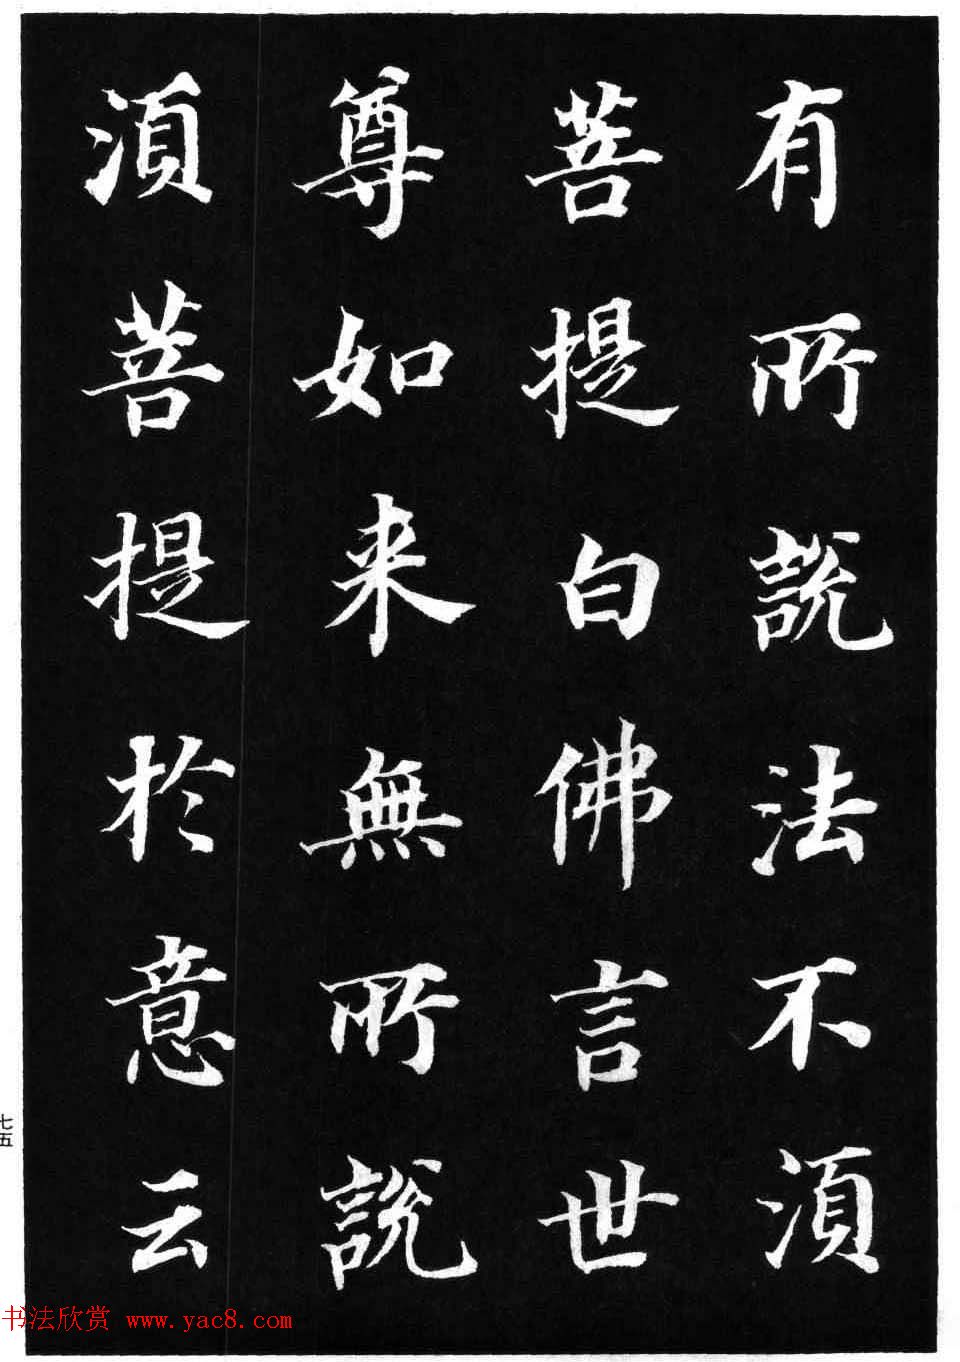 有所說法不須
菩提白佛言世
尊如来無所說
須菩提於意云
七五
书法欣赏 www.yac8.com